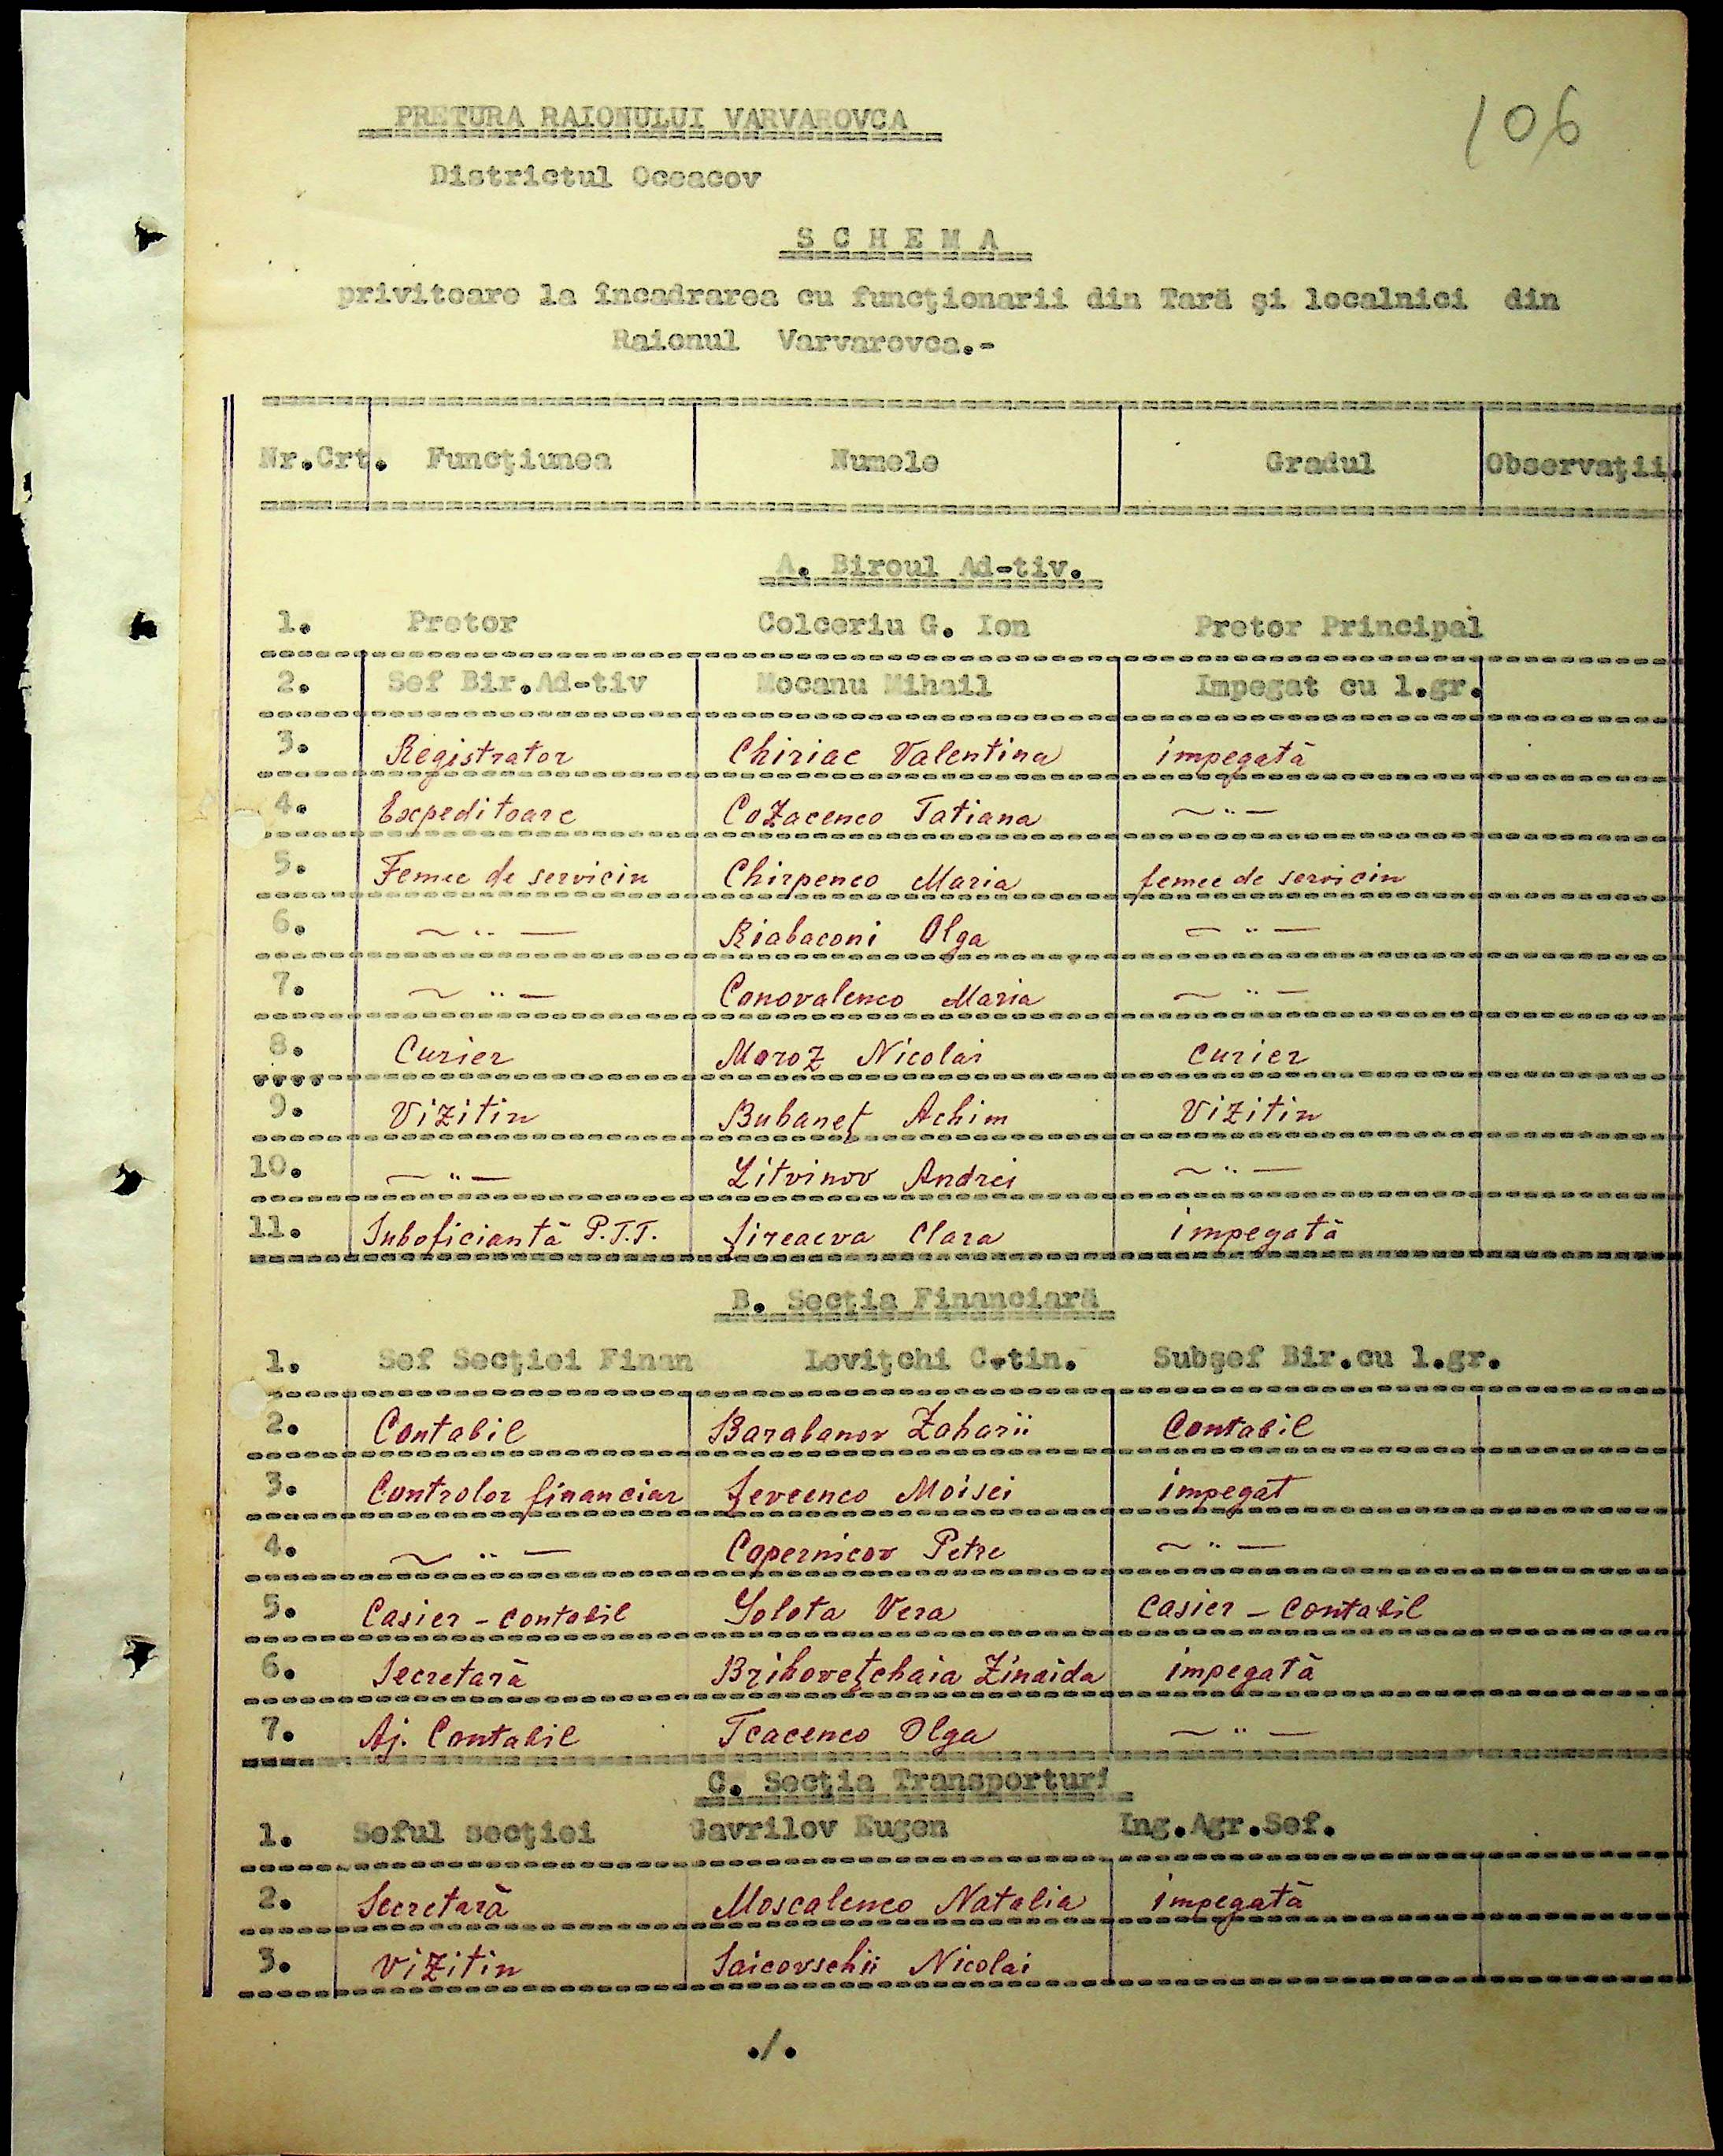 106
PRETURA RAIONULUI VARVAROVCA
Districtul Oceacov
S C H E M A
privitoare la încadrarea cu funcţionarii din Tară şi localnici din
Raionul Varvarovca.-
Nr.Crt. Funcţiunea Numele Gradul Observaţii.
A. Biroul Ad-tiv.
1. Pretor Colceriu G. Ion Pretor Principal
2. Sef Bir.Ad-tiv Mocanu Mihail Impegat cu 1.gr.
3. Registrator Chiriac Valentina impegată
4. Expeditoare Cozacenco Tatiana — " —
5. Femee de serviciu Chirpenco Maria femee de serviciu
6. — " — Riabaconi Olga — " —
7. — " — Conovalenco Maria — " —
8. Curier Moroz Nicolai Curier
9. Vizitiu Bubaneţ Achim Vizitiu
10. — " — Litvinov Andrei — " —
11. Suboficiantă P.T.T. Şireaeva Clara impegată
B. Secţia Financiară
1. Sef Secţiei Finan Leviţchi C-tin. Subşef Bir.cu 1.gr.
2. Contabil Barabanov Zaharii Contabil
3. Controlor financiar Şevcenco Moisei impegat
4. — " — Copernicov Petre — " —
5. Casier - contabil Solota Vera Casier - Contabil
6. Secretară Brihoveţchaia Zinaida impegată
7. Aj. Contabil Tcacenco Olga — " —
C. Secţia Transporturi
1. Seful secţiei Gavrilov Eugen Ing.Agr.Sef.
2. Secretară Moscalenco Natalia impegată
3. Vizitiu Saicovschii Nicolai
./.